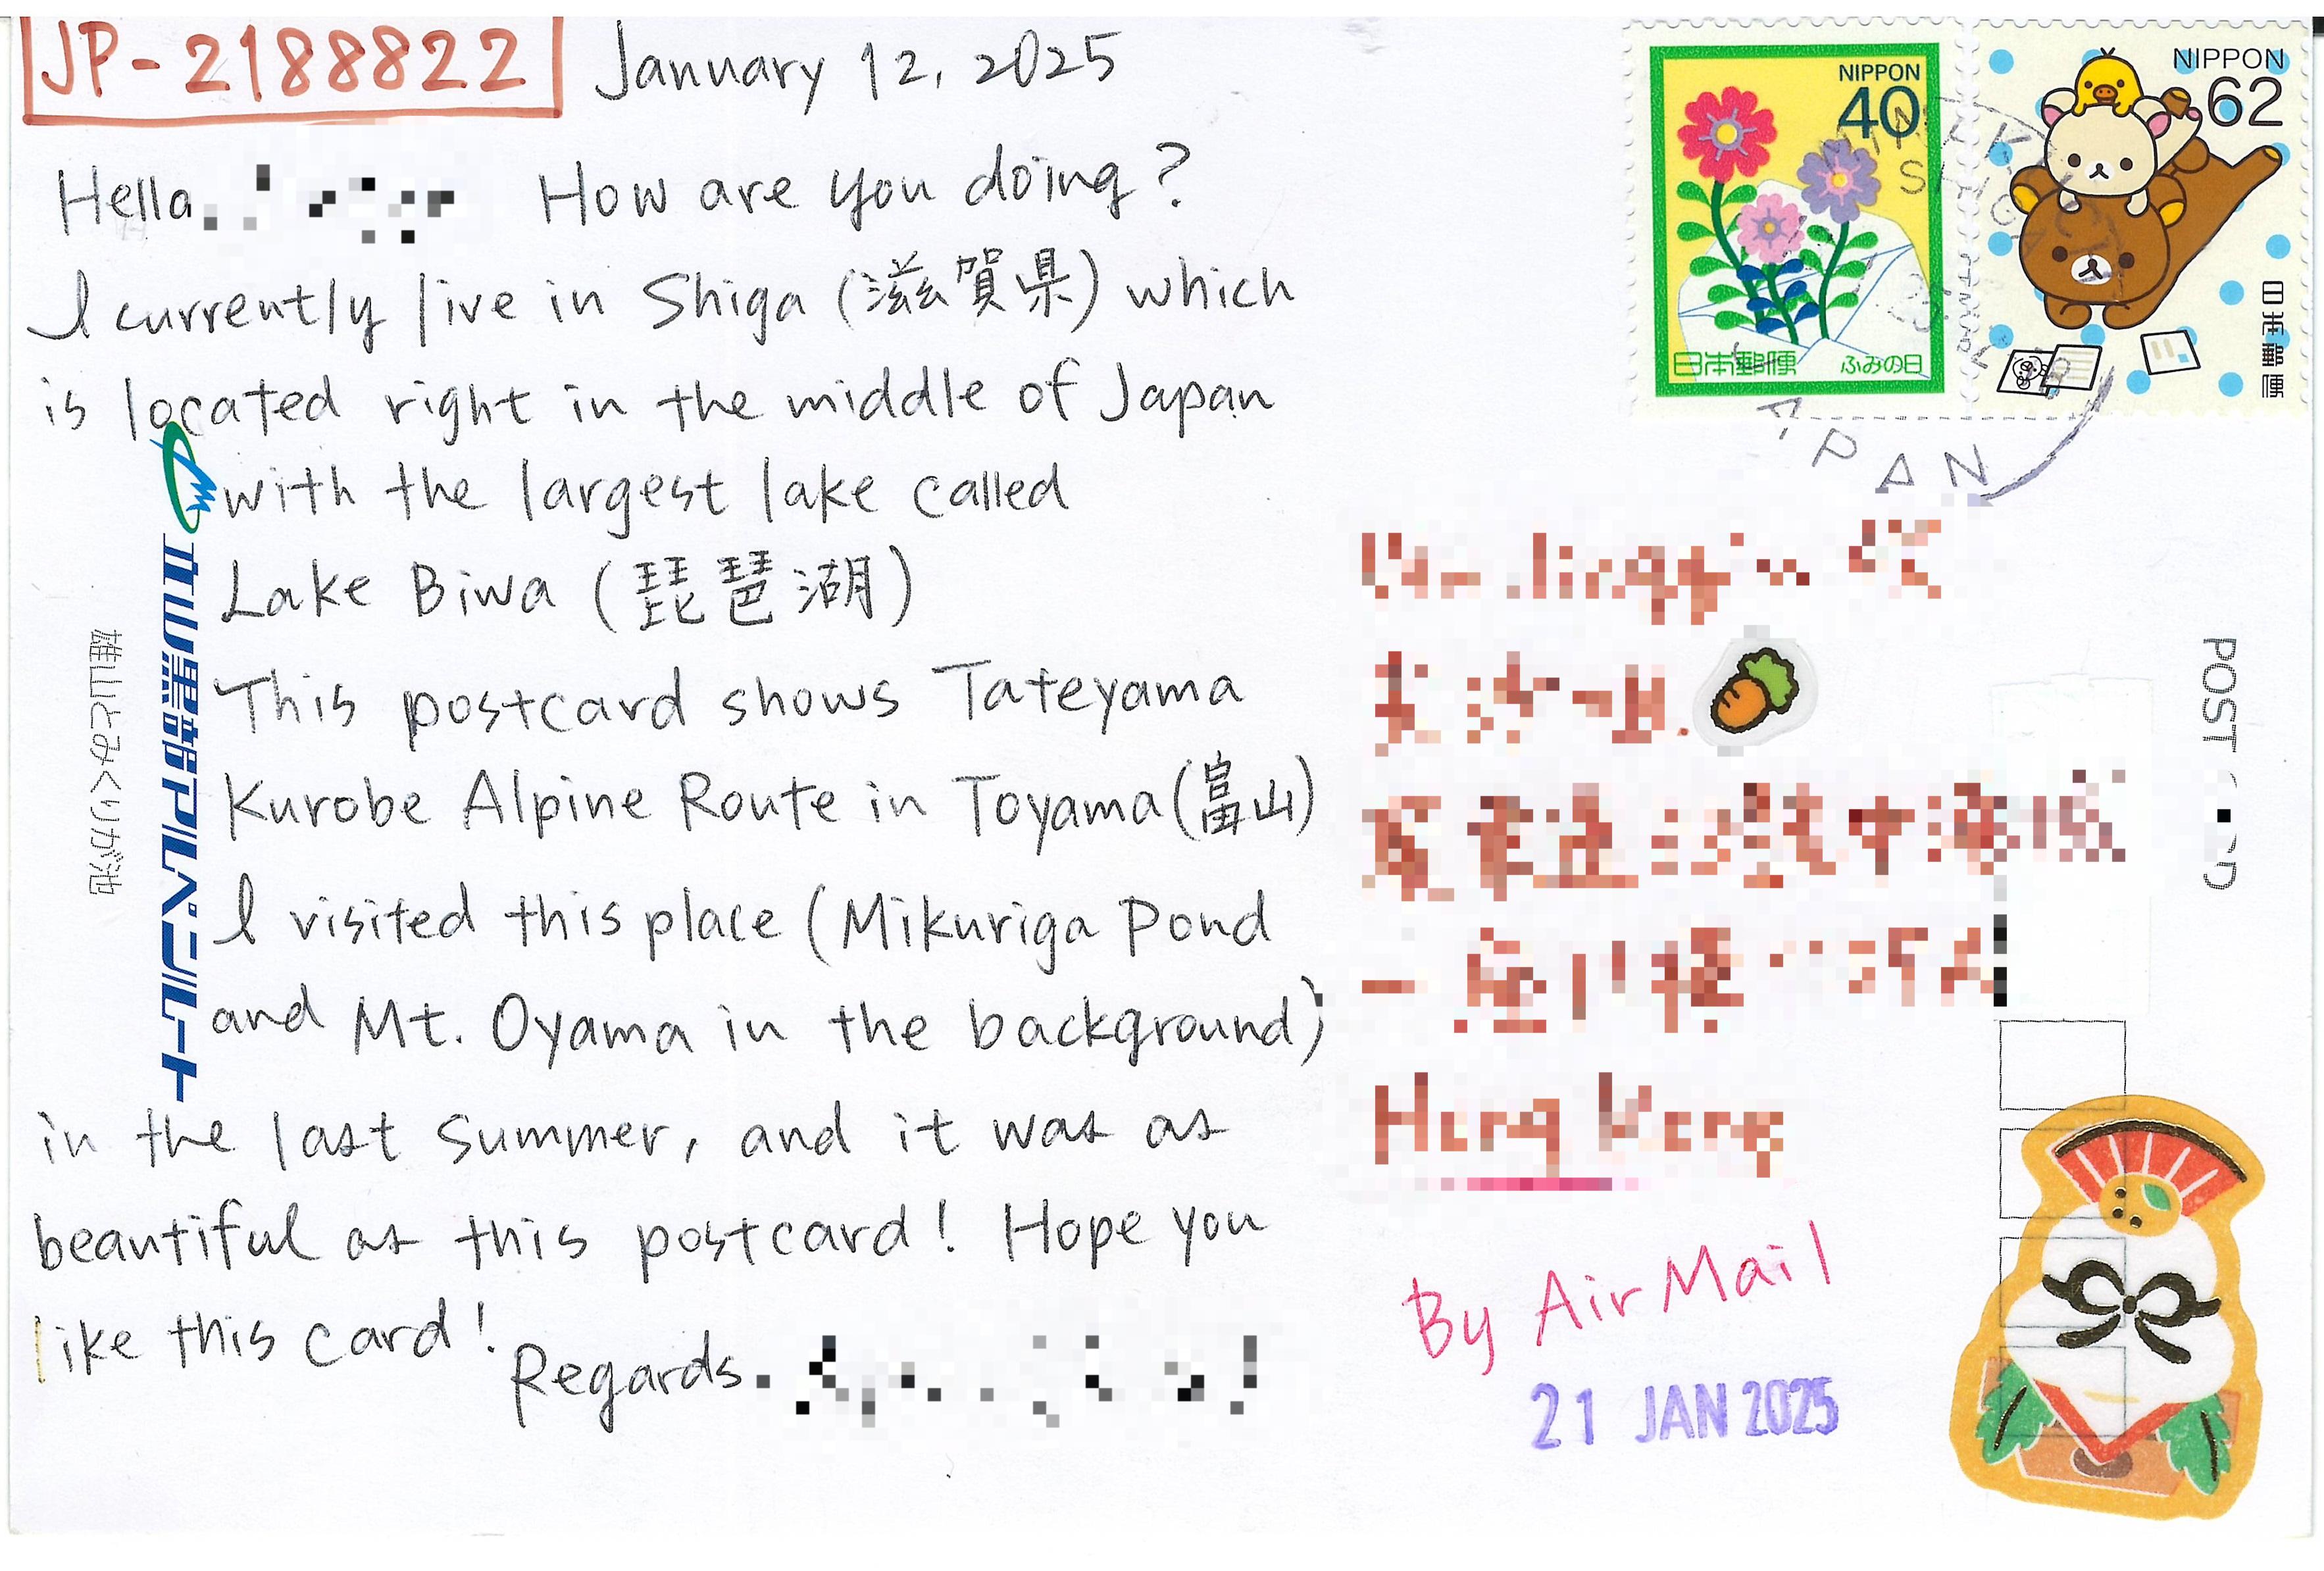 JP-2188822
January 12, 2025
Hello, How are you doing?
I currently live in Shiga (滋賀県) which
is located right in the middle of Japan
with the largest lake called
Lake Biwa (琵琶湖)
This postcard shows Tateyama
Kurobe Alpine Route in Toyama (富山)
I visited this place (Mikuriga Pond
and Mt. Oyama in the background)
in the last summer, and it was as
beautiful as this postcard! Hope you
like this card!
Regards.
立山黒部アルペンルート
雄山とみくりが池
NIPPON
40
日本郵便 ふみの日
NIPPON
62
日本郵便
JAPAN
Hong Kong
By Air Mail
21 JAN 2025
POST